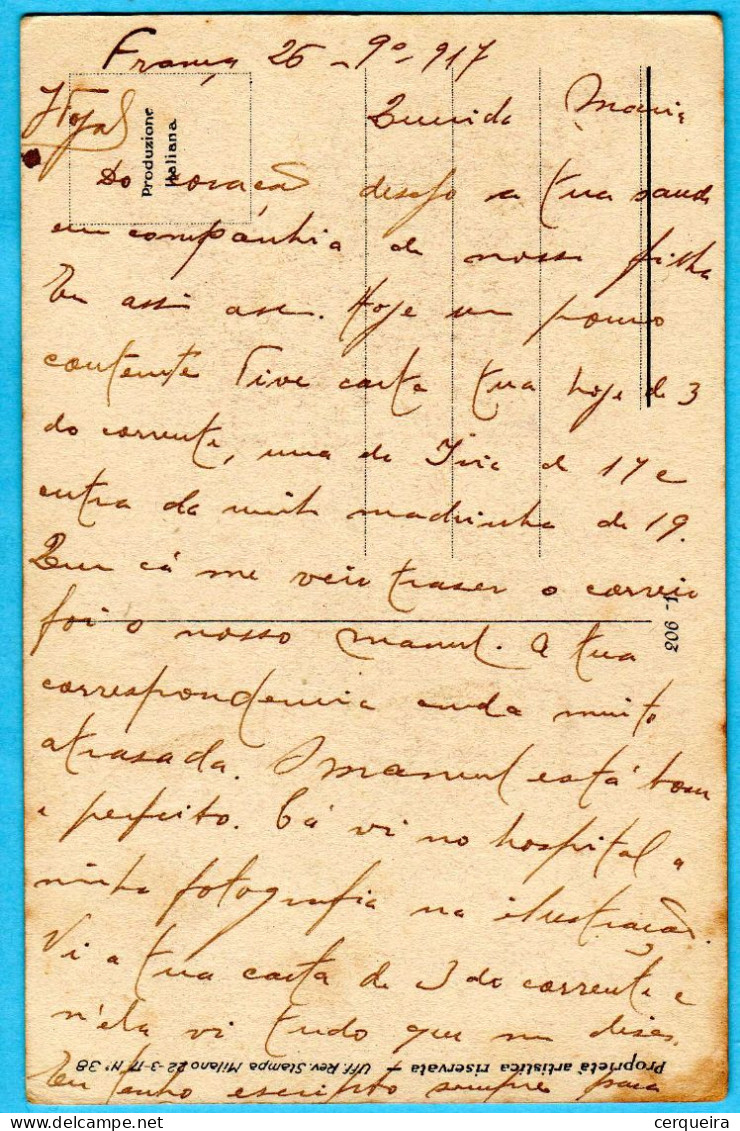 França 26-9º-917
Querida Maria
Produzione
Italiana.
Do coração desejo a tua saude
em companhia de nossa filha
Eu assi assi. Hoje um pouco
contente Tive carta tua hoje de 3
do corrente, uma da Iria de 17 e
outra da minha madrinha de 19.
Quem cá me veio traser o correio
foi o nosso Manuel. A tua
206-1
correspondencia anda muito
atrasada. O Manuel está bom
e perfeito. Cá vi no hospital a
minha fotografia na ilustração.
Vi a tua carta de 3 do corrente e
n'ela vi tudo que me dises.
Proprietà artistica riservata - Uff. Rev. Stampa Milano 22-3-17 Nº 38
Eu tenho escripto sempre para
cerqueira